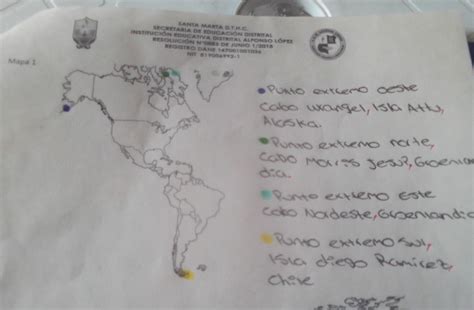 SANTA MARTA D.T.H.C.
SECRETARIA DE EDUCACIÓN DISTRITAL
INSTITUCIÓN EDUCATIVA DISTRITAL ALFONSO LÓPEZ
RESOLUCIÓN N°0883 DE JUNIO 1/2018
REGISTRO DANE 147001001036
NIT 819006992-1
Mapa 1
Punto extremo oeste
Cabo Wrangel, Isla Attu,
Alaska.
Punto extremo norte,
Cabo Morris Jesup, Groenlan
dia.
Punto extremo Este
Cabo Nordeste, Groenlandia
Punto extremo Sur,
Isla diego Ramírez,
Chile